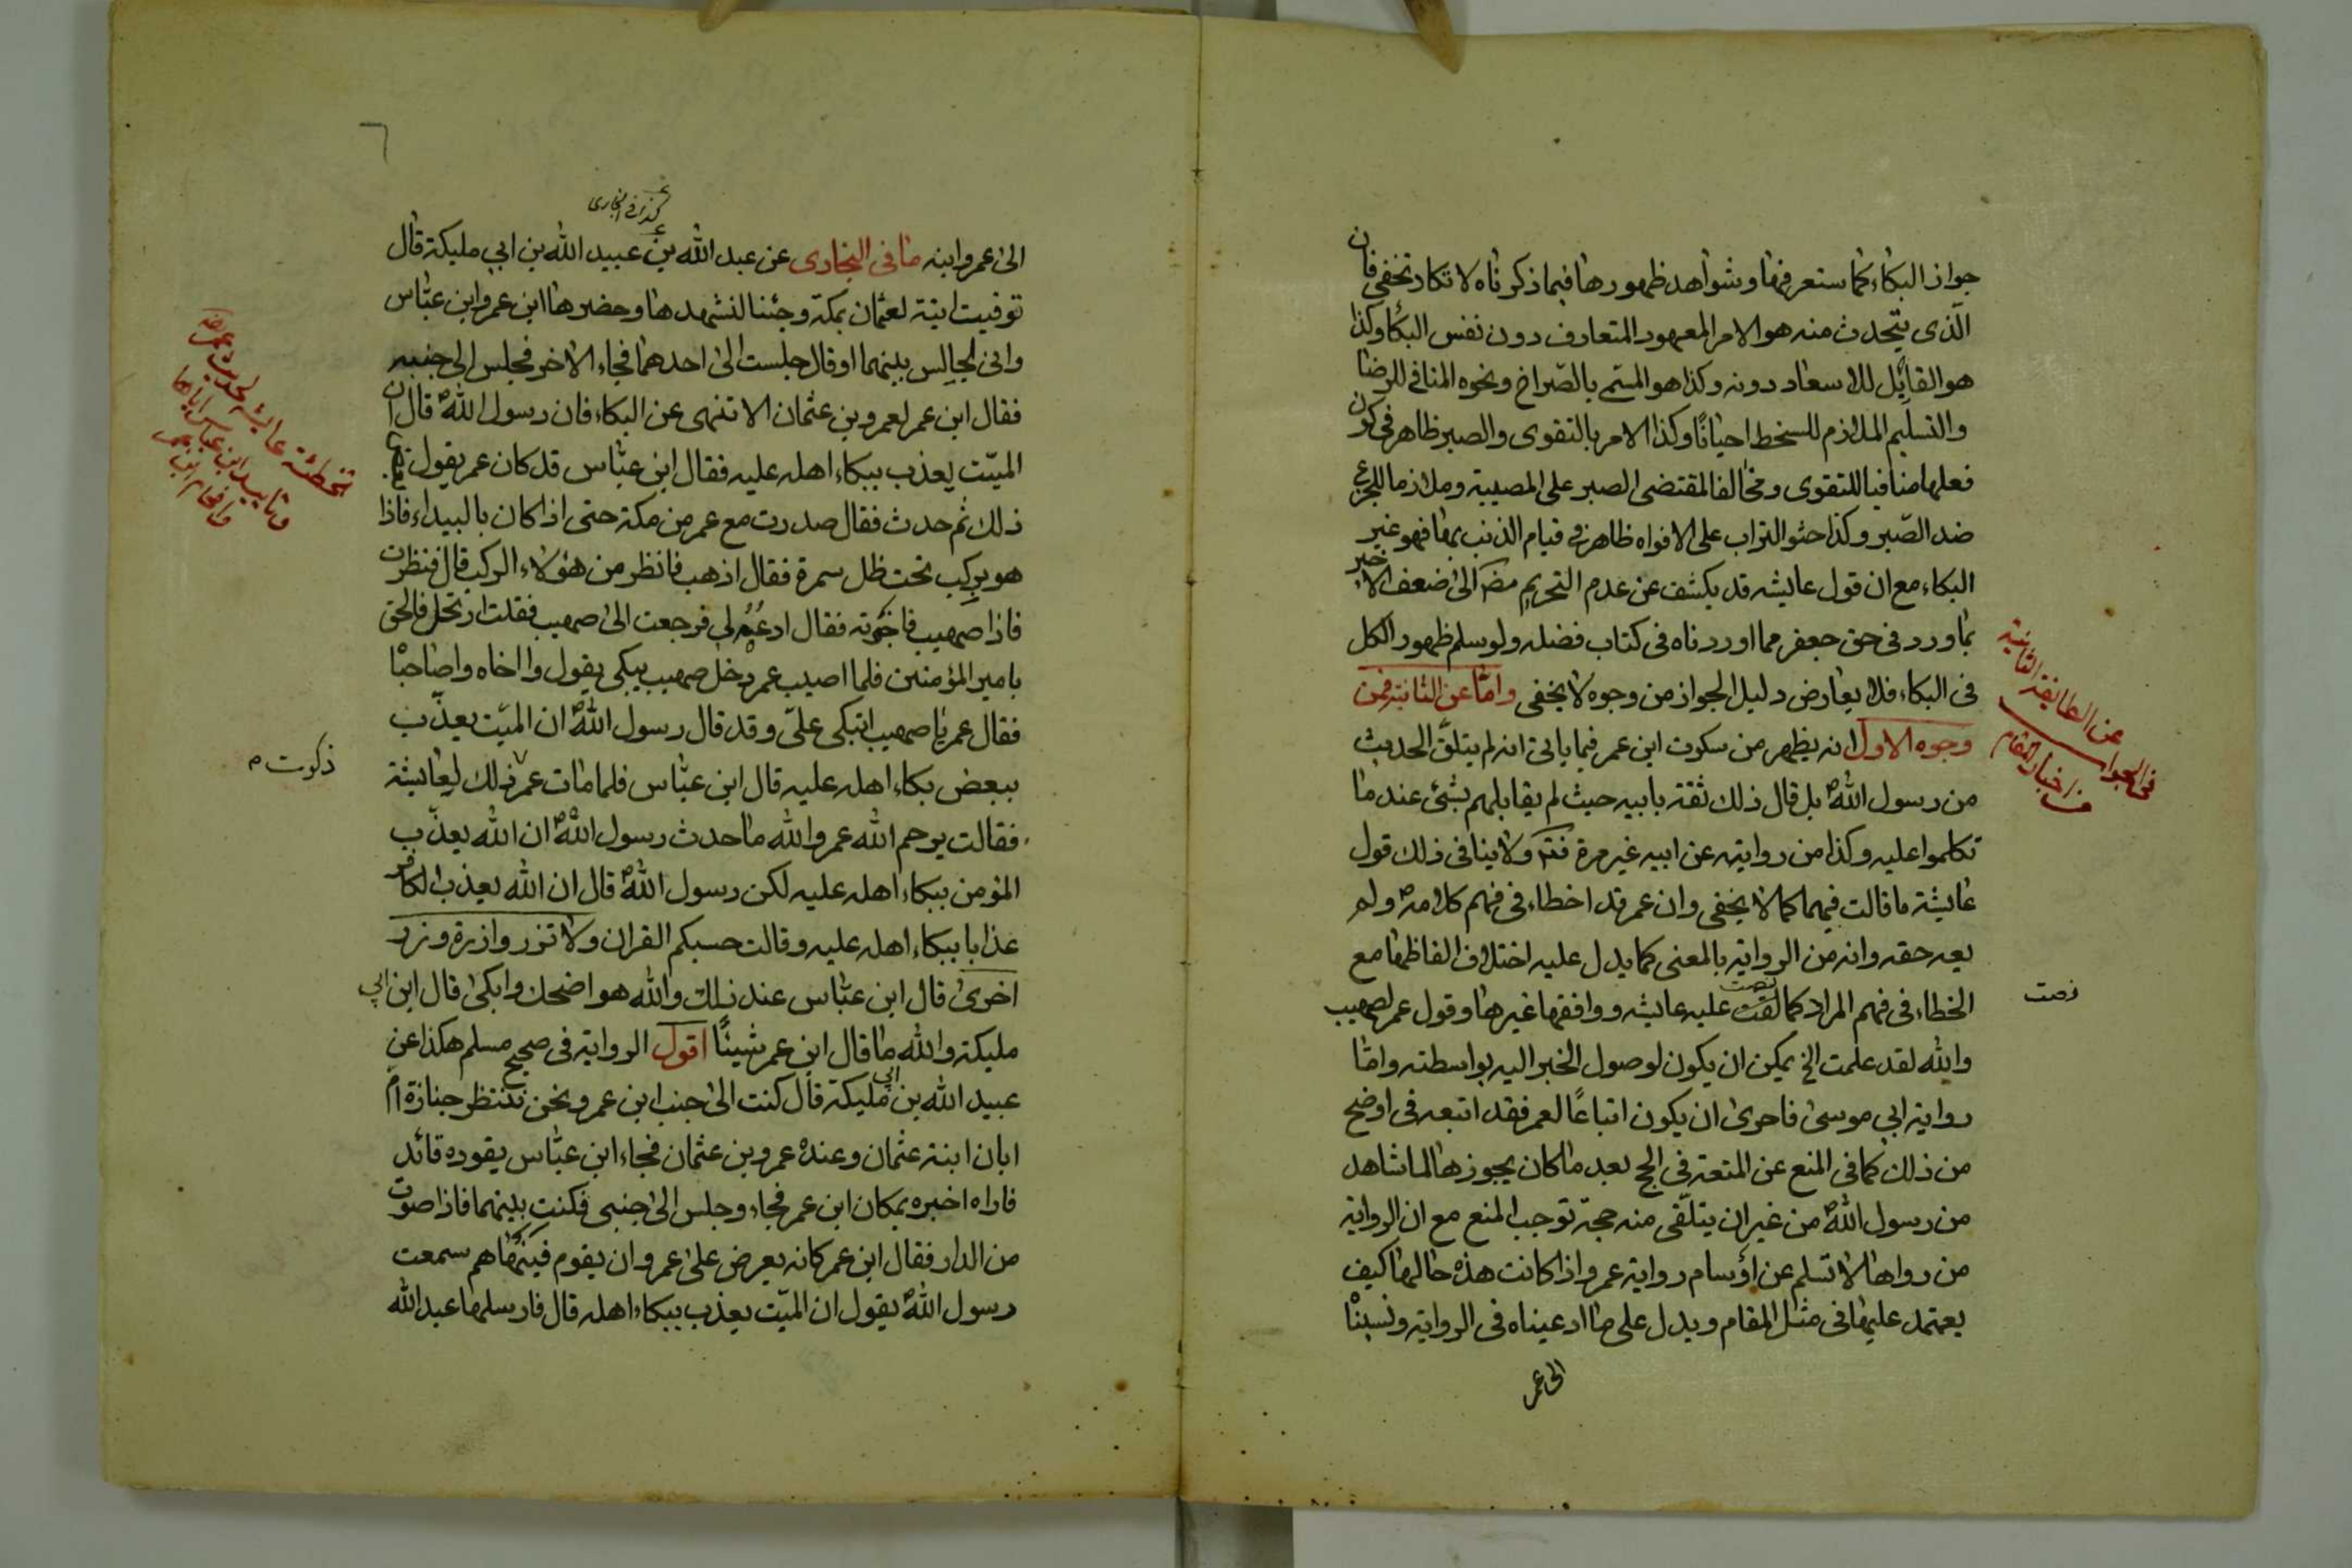 جواز البكاء كما ستعرفها وشواهد ظهورها فيما ذكرناه لا تكاد تخفى فان
الّذى يتحدث منه هو الامر المعهود المتعارف دون نفس البكاء وكذا
هو القابل للاسعاد دونه وكذا هو المسمى بالصّراخ ونحوه المنافى للرضا
والتسليم الملازم للسخط احيانًا وكذا الامر بالتقوى والصبر ظاهر فى كون
فعلها منافيا للتقوى ومخالفا لمقتضى الصبر على المصيبة وملازما للجزع
ضد الصّبر وكذا حثو التراب على الافواه ظاهر فى قيام الذنب بها فهو غير
البكاء مع ان قول عايشه قد يكشف عن عدم التحريم مضـ الى ضعف الاخير
بما ورد فى حق جعفر مما اوردناه فى كتاب فضله ولو سلم ظهور الكل
فى البكاء فلا يعارض دليل الجواز من وجوه لا يخفى واما عن الثانية فمن
وجوه الاول انه يظهر من سكوت ابن عمر فيما ياتى انه لم يتلقّ الحديث
من رسول اللهؐ بل قال ذلك ثقة بابيه حيث لم يقابلهم بشئ عند ما
تكلموا عليه وكذا من روايته عن ابيه غير مرة فتـ ولا ينافى ذلك قول
عايشة ما قالت فيهما كما لا يخفى وان عمر قد اخطاء فى فهم كلامهؐ ولم
يعه حقه وانه من الرواية بالمعنى كما يدل عليه اختلاف الفاظها مع
الخطاء فى فهم المراد كما نصت عليه عايشه ووافقها غيرها وقول عمر لصهيب
والله لقد علمت الخ يمكن ان يكون لوصول الخبر اليه بواسطته واما
رواية ابي موسى فاحرى ان يكون اتباعًا لعمر فقد اتبعه فى اوضح
من ذلك كما فى المنع عن المتعة فى الحج بعد ما كان يجوزها لما شاهد
من رسول اللهؐ من غير ان يتلقّى منه حجة توجب المنع مع ان الرواية
من رواها لا تسلم عن رواية عمر واذا كانت هذه حالها كيف
يعتمد عليها فى مثل المقام ويدل على ما ادعيناه فى الرواية ونسبتها
الى عمر
فى الجواب عن الطايفة الثانية
من اخبار المقام
نصت
٦
كذا فى البخارى
الى عمر وابنه ما فى البخارى عن عبد الله بن عبيد الله بن ابي مليكة قال
توفيت ابنة لعثمان بمكة وجئنا لنشهدها وحضرها ابن عمر وابن عبّاس
وانى لجالس بينهما او قال جلست الى احدهما فجاء الاخر فجلس الى جنبى
فقال ابن عمر لعمرو بن عثمان الا تنهى عن البكاء فان رسول اللهؐ قال ان
الميّت يعذب ببكاء اهله عليه فقال ابن عبّاس قد كان عمر يقول بعض
ذلك ثم حدث فقال صدرت مع عمر من مكة حتى اذا كان بالبيداء فاذا
هو بركب تحت ظل سمرة فقال اذهب فانظر من هؤلاء الركب قال فنظرت
فاذا صهيب فاخبرته فقال ادعُهُ لى فرجعت الى صهيب فقلت ارتحل فالحق
بامير المؤمنين فلما اصيب عمر دخل صهيب يبكى يقول وا اخاه واصاحباه
فقال عمر يا صهيب اتبكى علىّ وقد قال رسول اللهؐ ان الميّت يعذّب
ببعض بكاء اهله عليه قال ابن عبّاس فلما مات عمر ذلك لعايشة
فقالت يرحم الله عمر والله ما حدث رسول اللهؐ ان الله يعذّب
المؤمن ببكاء اهله عليه لكن رسول اللهؐ قال ان الله يعذب الكافر
عذابا ببكاء اهله عليه وقالت حسبكم القران ولا تزر وازرة وزر
اخرى قال ابن عبّاس عند ذلك والله هو اضحك وابكى قال ابن ابي
مليكة والله ما قال ابن عمر شيئًا اقول الرواية فى صحيح مسلم هكذا عن
عبيد الله بن ابي مليكة قال كنت الى جنب ابن عمر ونحن ننتظر جنازة ام
ابان ابنة عثمان وعنده عمرو بن عثمان فجاء ابن عبّاس يقوده قائد
فاراه اخبره بمكان ابن عمر فجاء وجلس الى جنبى فكنت بينهما فاذا صوت
من الدار فقال ابن عمر كانه يعرض على عمرو ان يقوم فينهاهم سمعت
رسول اللهؐ يقول ان الميّت يعذب ببكاء اهله قال فارسلها عبد الله
تخطئة عايشه لحديث عمر
وتاييد ابن عباس اياها
وافحام ابن عمر
ذكرت